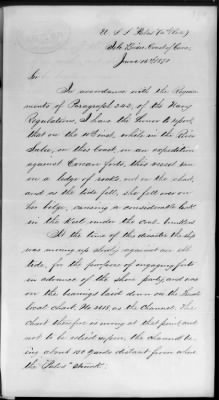 U. S. S. Palos (4th Rate)
Sale River, Coast of Corea,
June 15th 1871
Sir
In accordance with the Require-
ments of Paragraph 243, of the Navy
Regulations, I have the honor to report,
that on the 10th inst, while in the River
Salee, on this coast, in an expedition
against Corean forts, this vessel run
on a ledge of rocks, not on the chart,
and as the tide fell, she fell over on
her bilge, causing a considerable leak
in the Keel under the coal bunkers
At the time of the disaster the ship
was moving up slowly against an ebb
tide, for the purpose of engaging forts
in advance of the shore party, and was
on the bearings laid down on the
chart No 2615, as the Channel. The
Chart therefore is wrong at that point, and
not to be relied upon, the channel be-
ing about 150 yards distant from where
the "Palos" struck.